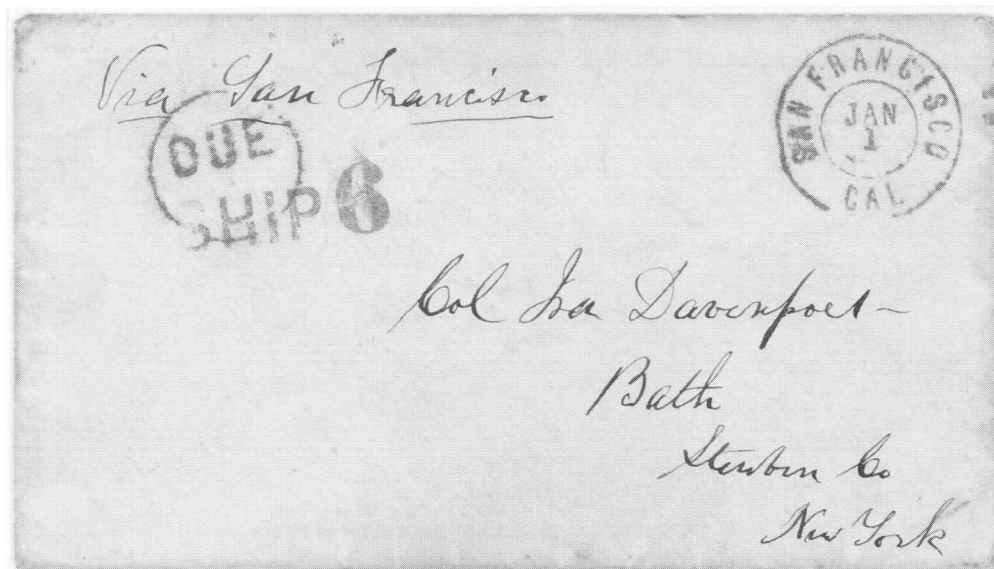 Via San Francisco
SAN FRANCISCO
JAN
1
CAL
DUE
SHIP 6
Col Ira Davenport
Bath
Steuben Co
New York